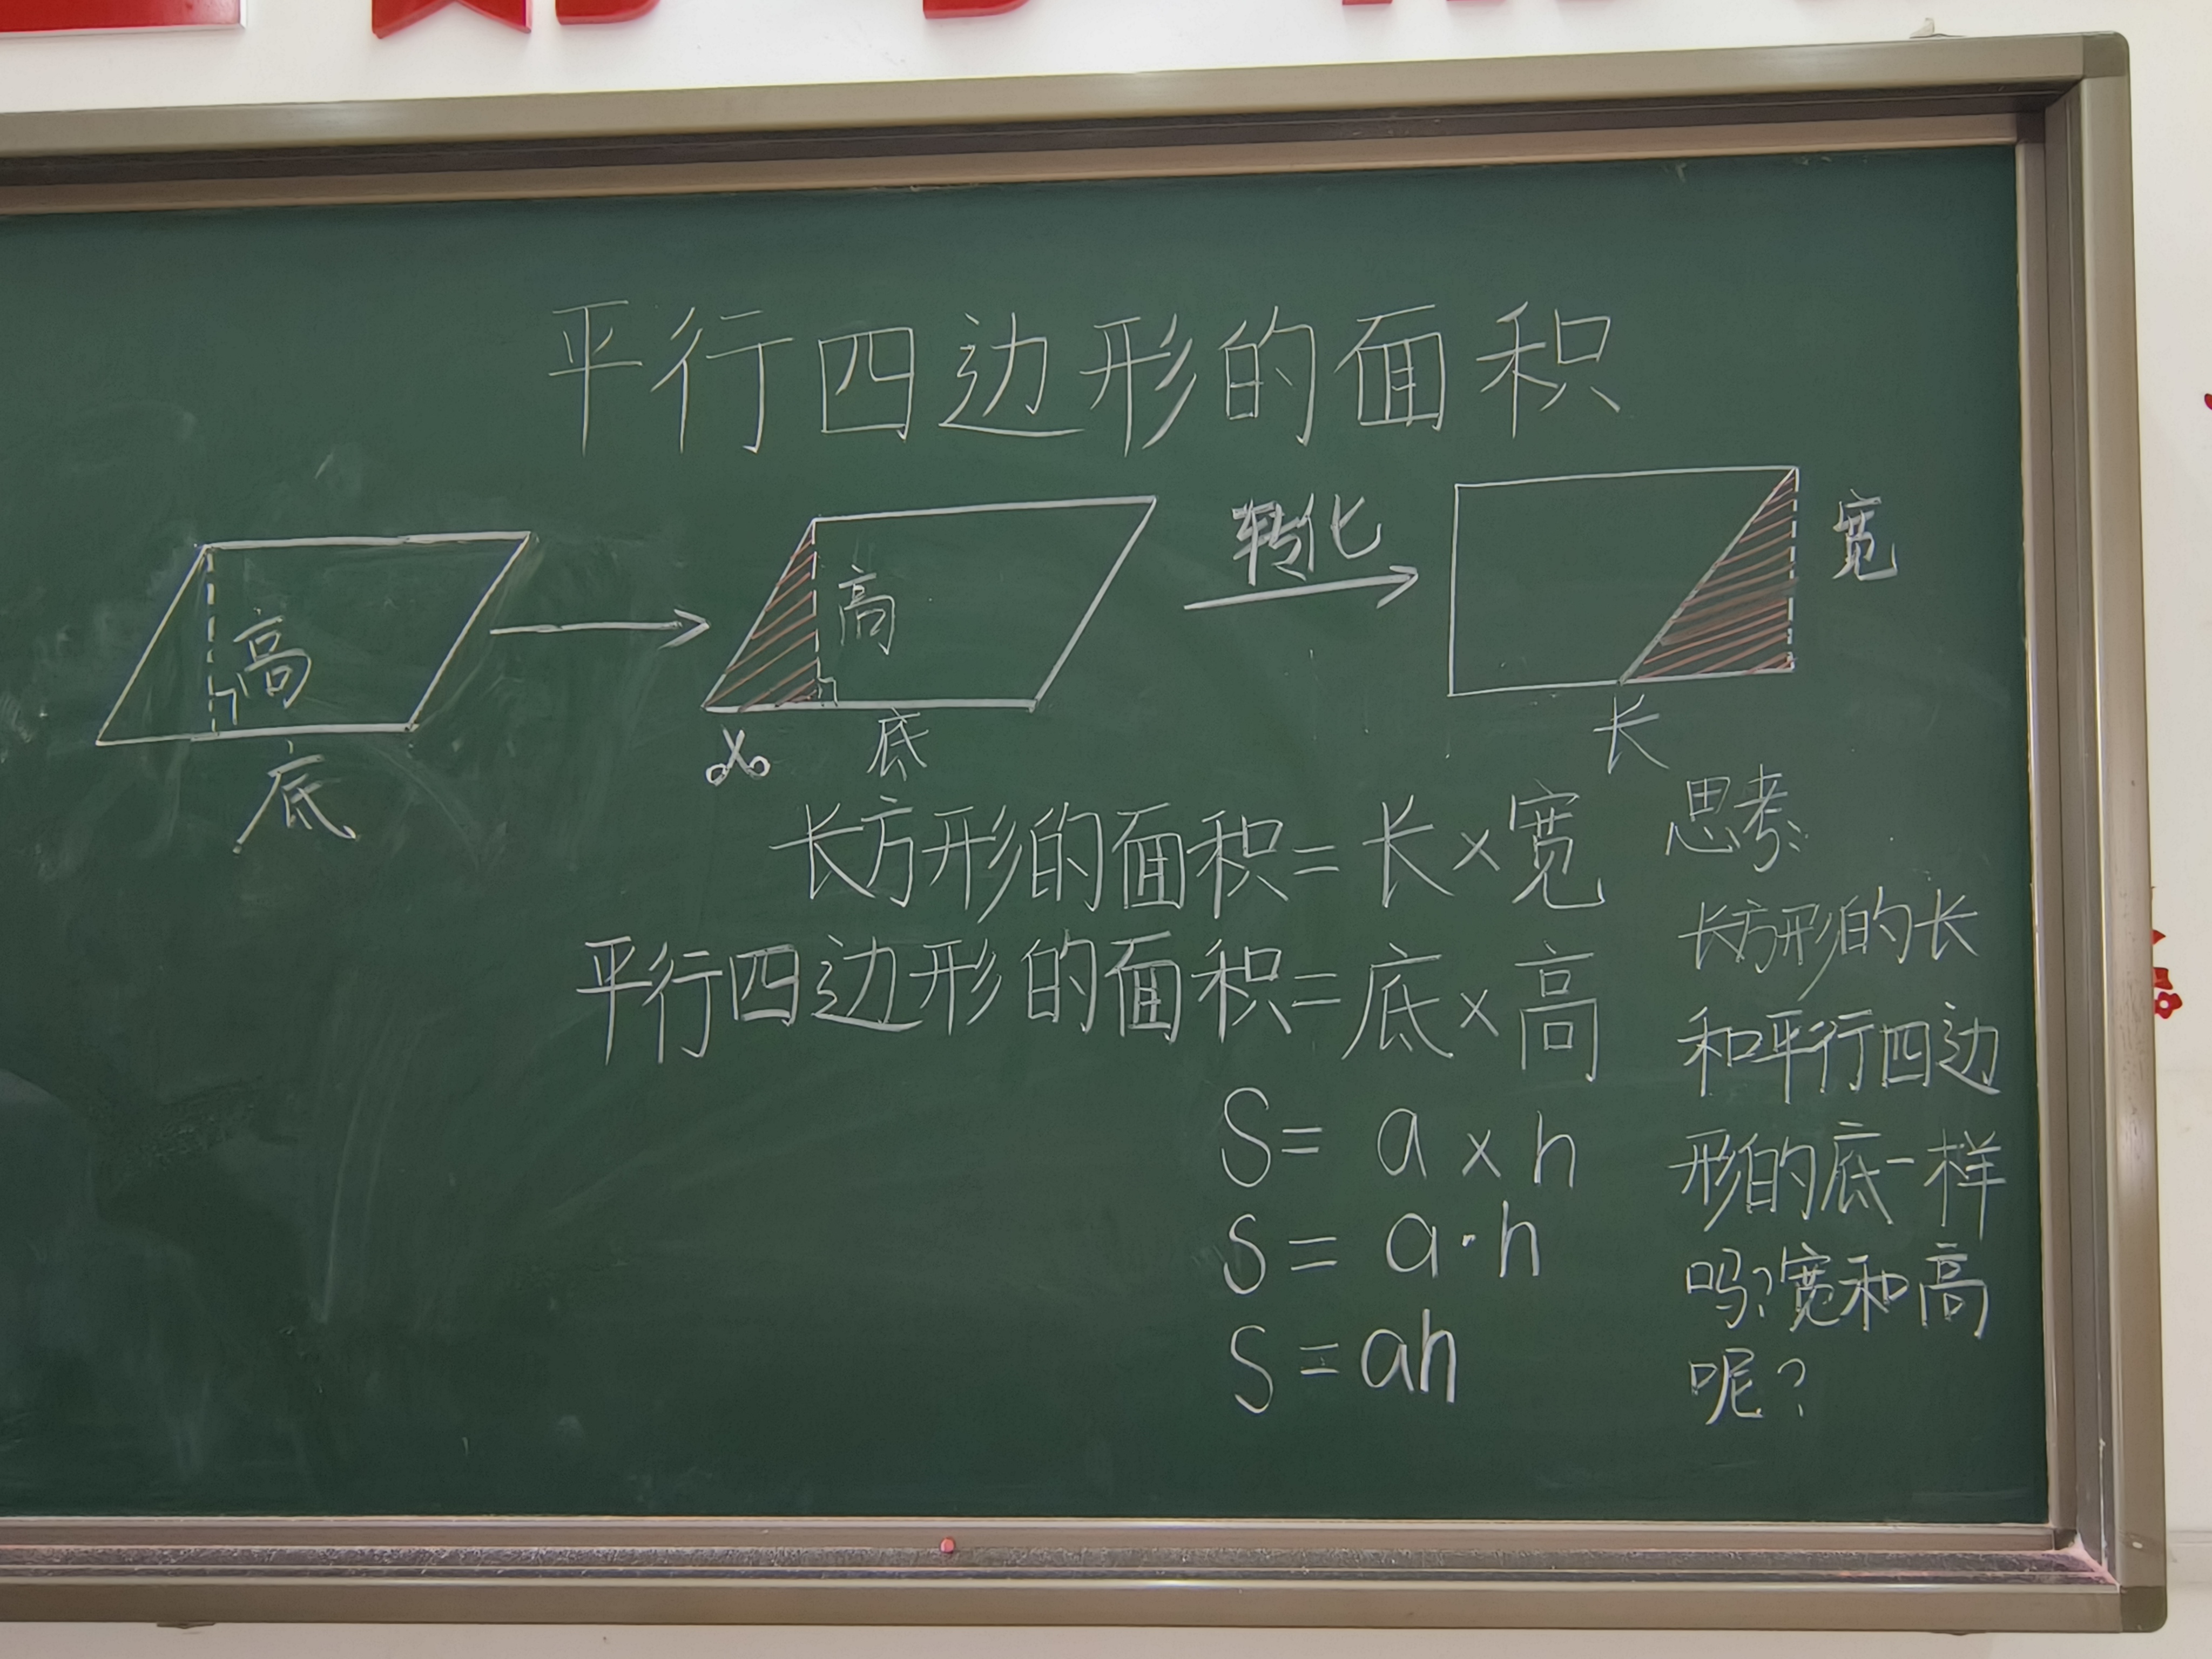 平行四边形的面积
高
底
高
底
转化
宽
长
长方形的面积=长×宽
平行四边形的面积=底×高
S= a×h
S=a·h
S=ah
思考:
长方形的长
和平行四边
形的底一样
吗?宽和高
呢?